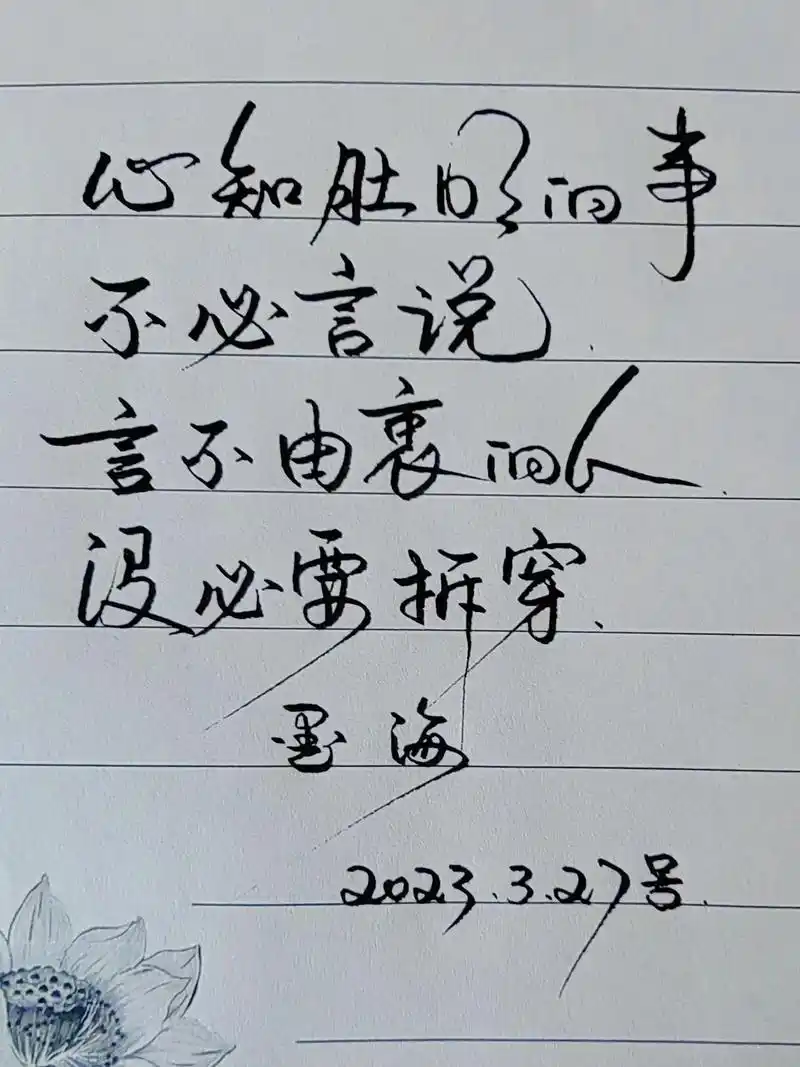 心知肚明的事
不必言说.
言不由衷的人.
没必要拆穿.
墨海
2023.3.27号.